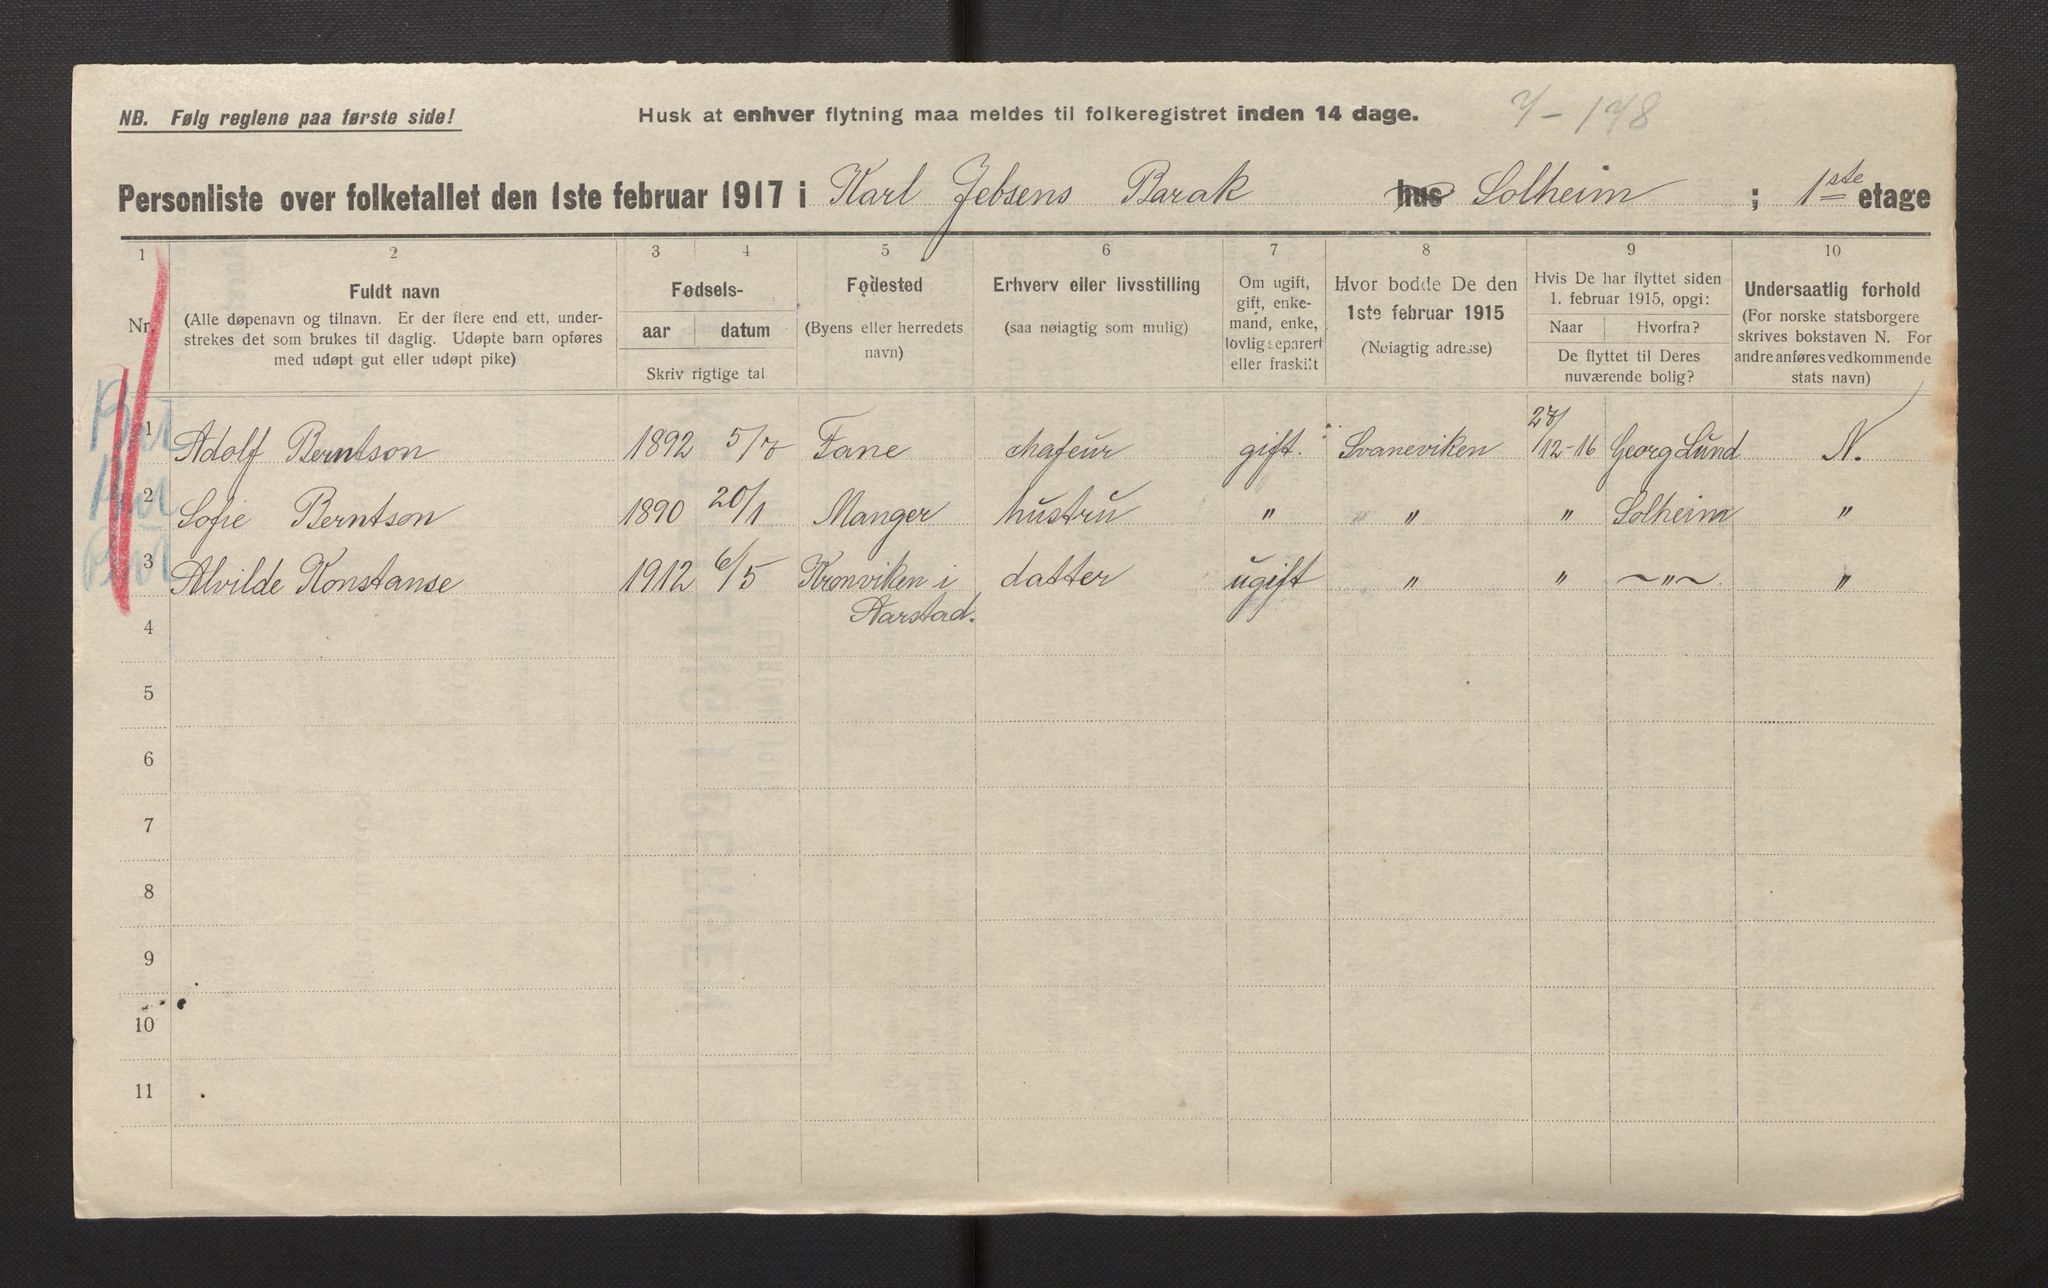 NB. Følg reglene paa første side!
Husk at enhver flytning maa meldes til folkeregistret inden 14 dage.
Personliste over folketallet den 1ste februar 1917 i Karl Jebsens Barak hus Solheim ; 1ste etage
1 2 3 4 5 6 7 8 9 10
Nr.
Fuldt navn
(Alle døpenavn og tilnavn. Er der flere end ett, under-
strekes det som brukes til daglig. Udøpte barn opføres
med udøpt gut eller udøpt pike)
Fødsels-
aar datum
Skriv rigtige tal
Fødested
(Byens eller herredets
navn)
Erhverv eller livsstilling
(saa nøiagtig som mulig)
Om ugift,
gift, enke-
mand, enke,
lovlig separert
eller fraskilt
Hvor bodde De den
1ste februar 1915
(Nøiagtig adresse)
Hvis De har flyttet siden
1. februar 1915, opgi:
Naar Hvorfra?
De flyttet til Deres
nuværende bolig?
Undersaatlig forhold
(For norske statsborgere
skrives bokstaven N. For
andre anføres vedkommende
stats navn)
1 Adolf Berntson 1892 5/7 Fane chafeur gift. Svaneviken 28/12-16 Georg Lund N.
2 Sofie Berntson 1890 20/1 Manger hustru " " " " Solheim "
3 Alvilde Konstanse 1912 6/5 Kronviken i datter ugift " " ~"~ "
Aarstad.
4
5
6
7
8
9
10
11